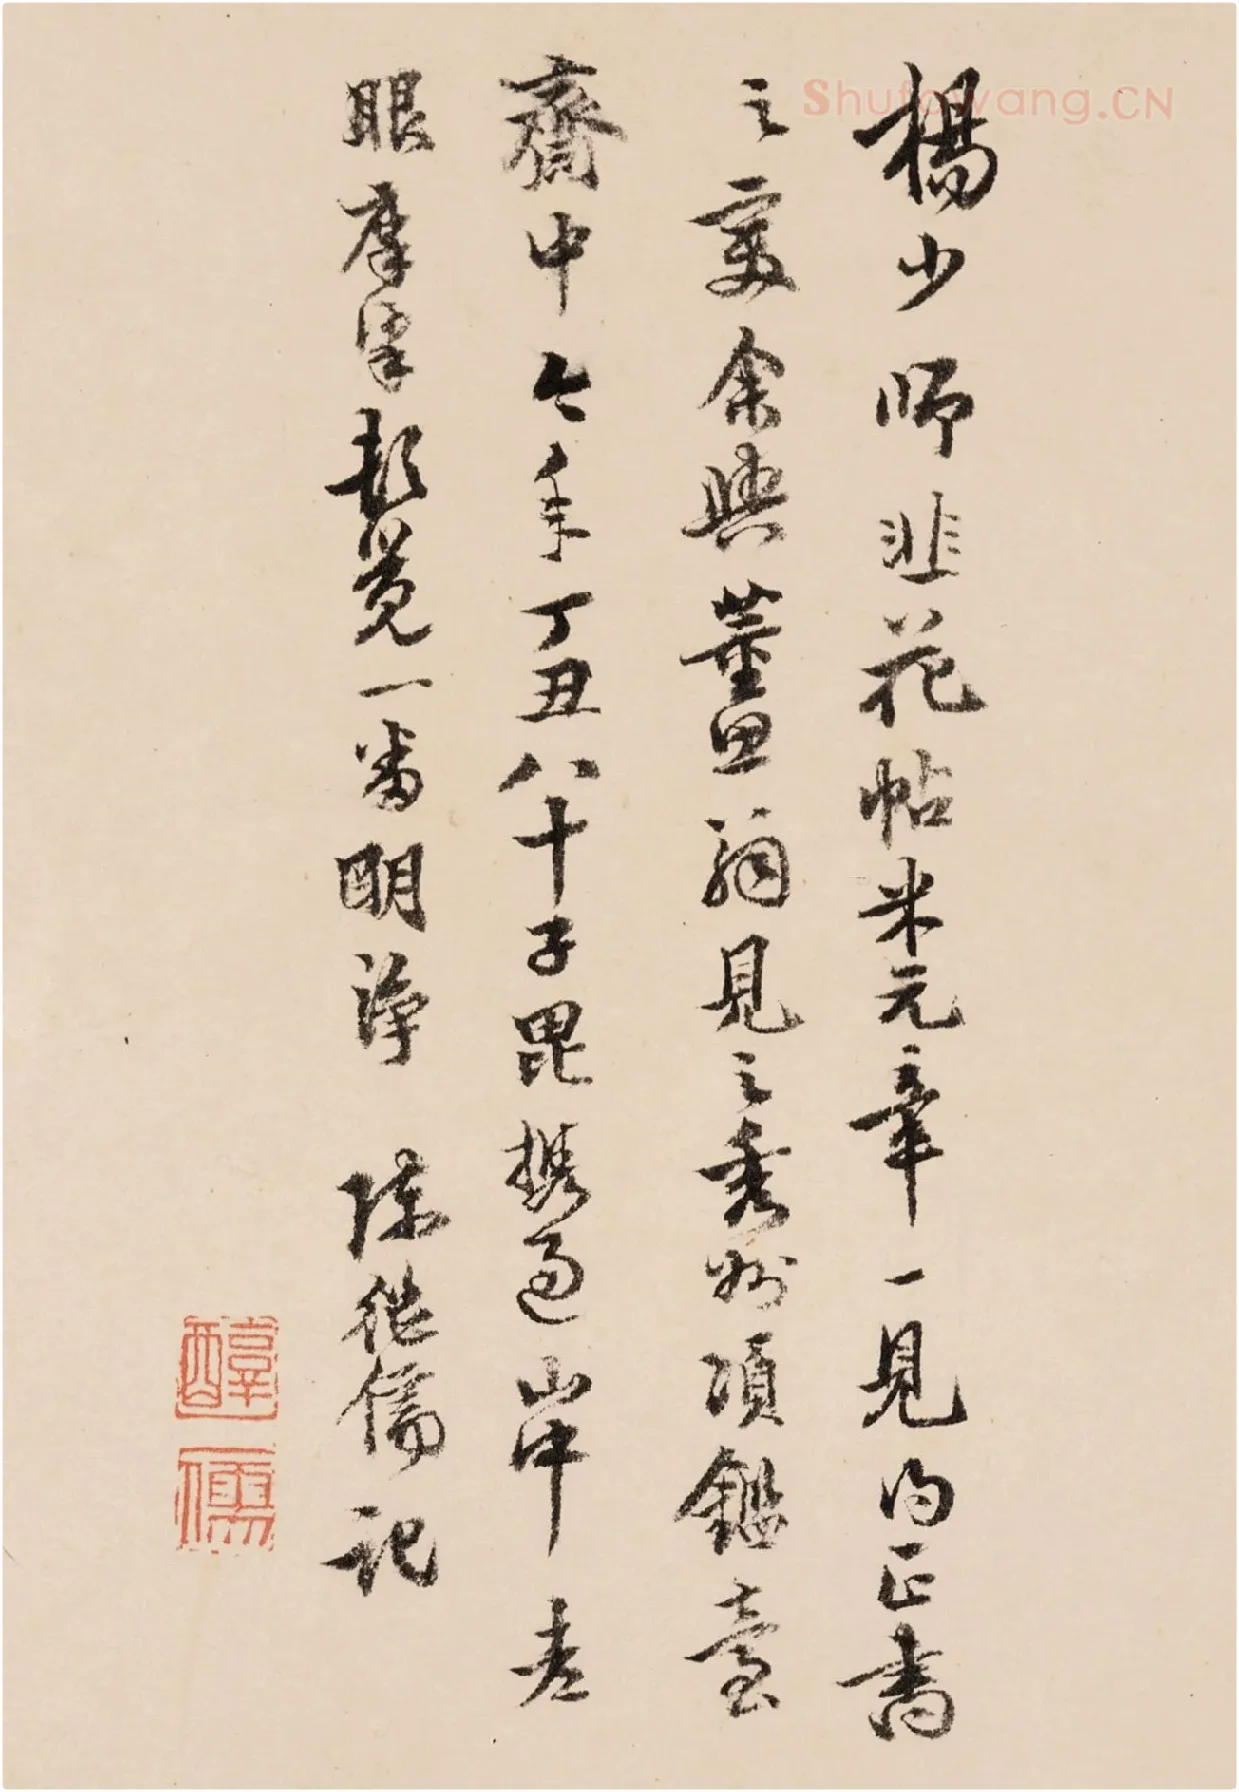 Shufawang.CN
楊少師韭花帖米元章一見內正書
之變余與董思翁見之秀州項鑑臺
齋中今年丁丑八十子毘攜過山中老
眼摩挲頓覺一番明淨 陳繼儒記
醇
儒